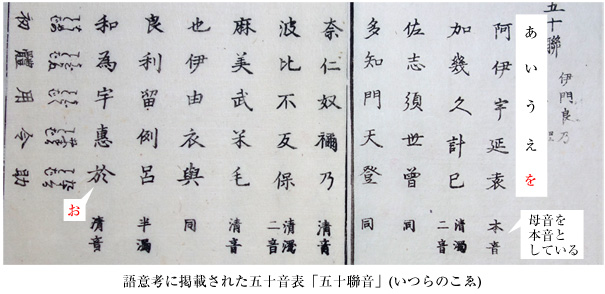 五十聯
伊門良乃
あいうえを
阿伊宇延袁 本音
加幾久計己 清濁二音
佐志須世曾 同
多知門天登 同
奈仁奴禰乃 清音
波比不反保 清濁二音
麻美武米毛 清音
也伊由衣與 同
良利留例呂 半濁
和為宇惠於 清音
初體用令助
お
母音を
本音と
している
語意考に掲載された五十音表「五十聯音」(いつらのこゑ)